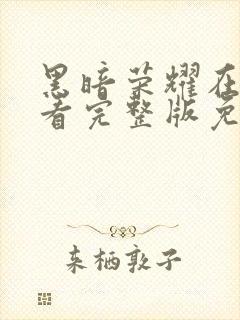 黑暗荣耀在
看完整版免
来栖敦子